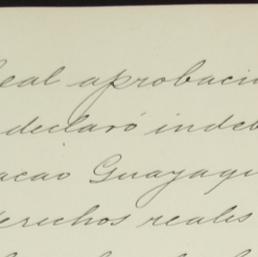 Real aprobació
declaró indeb
acao Guayaqui
derechos reales